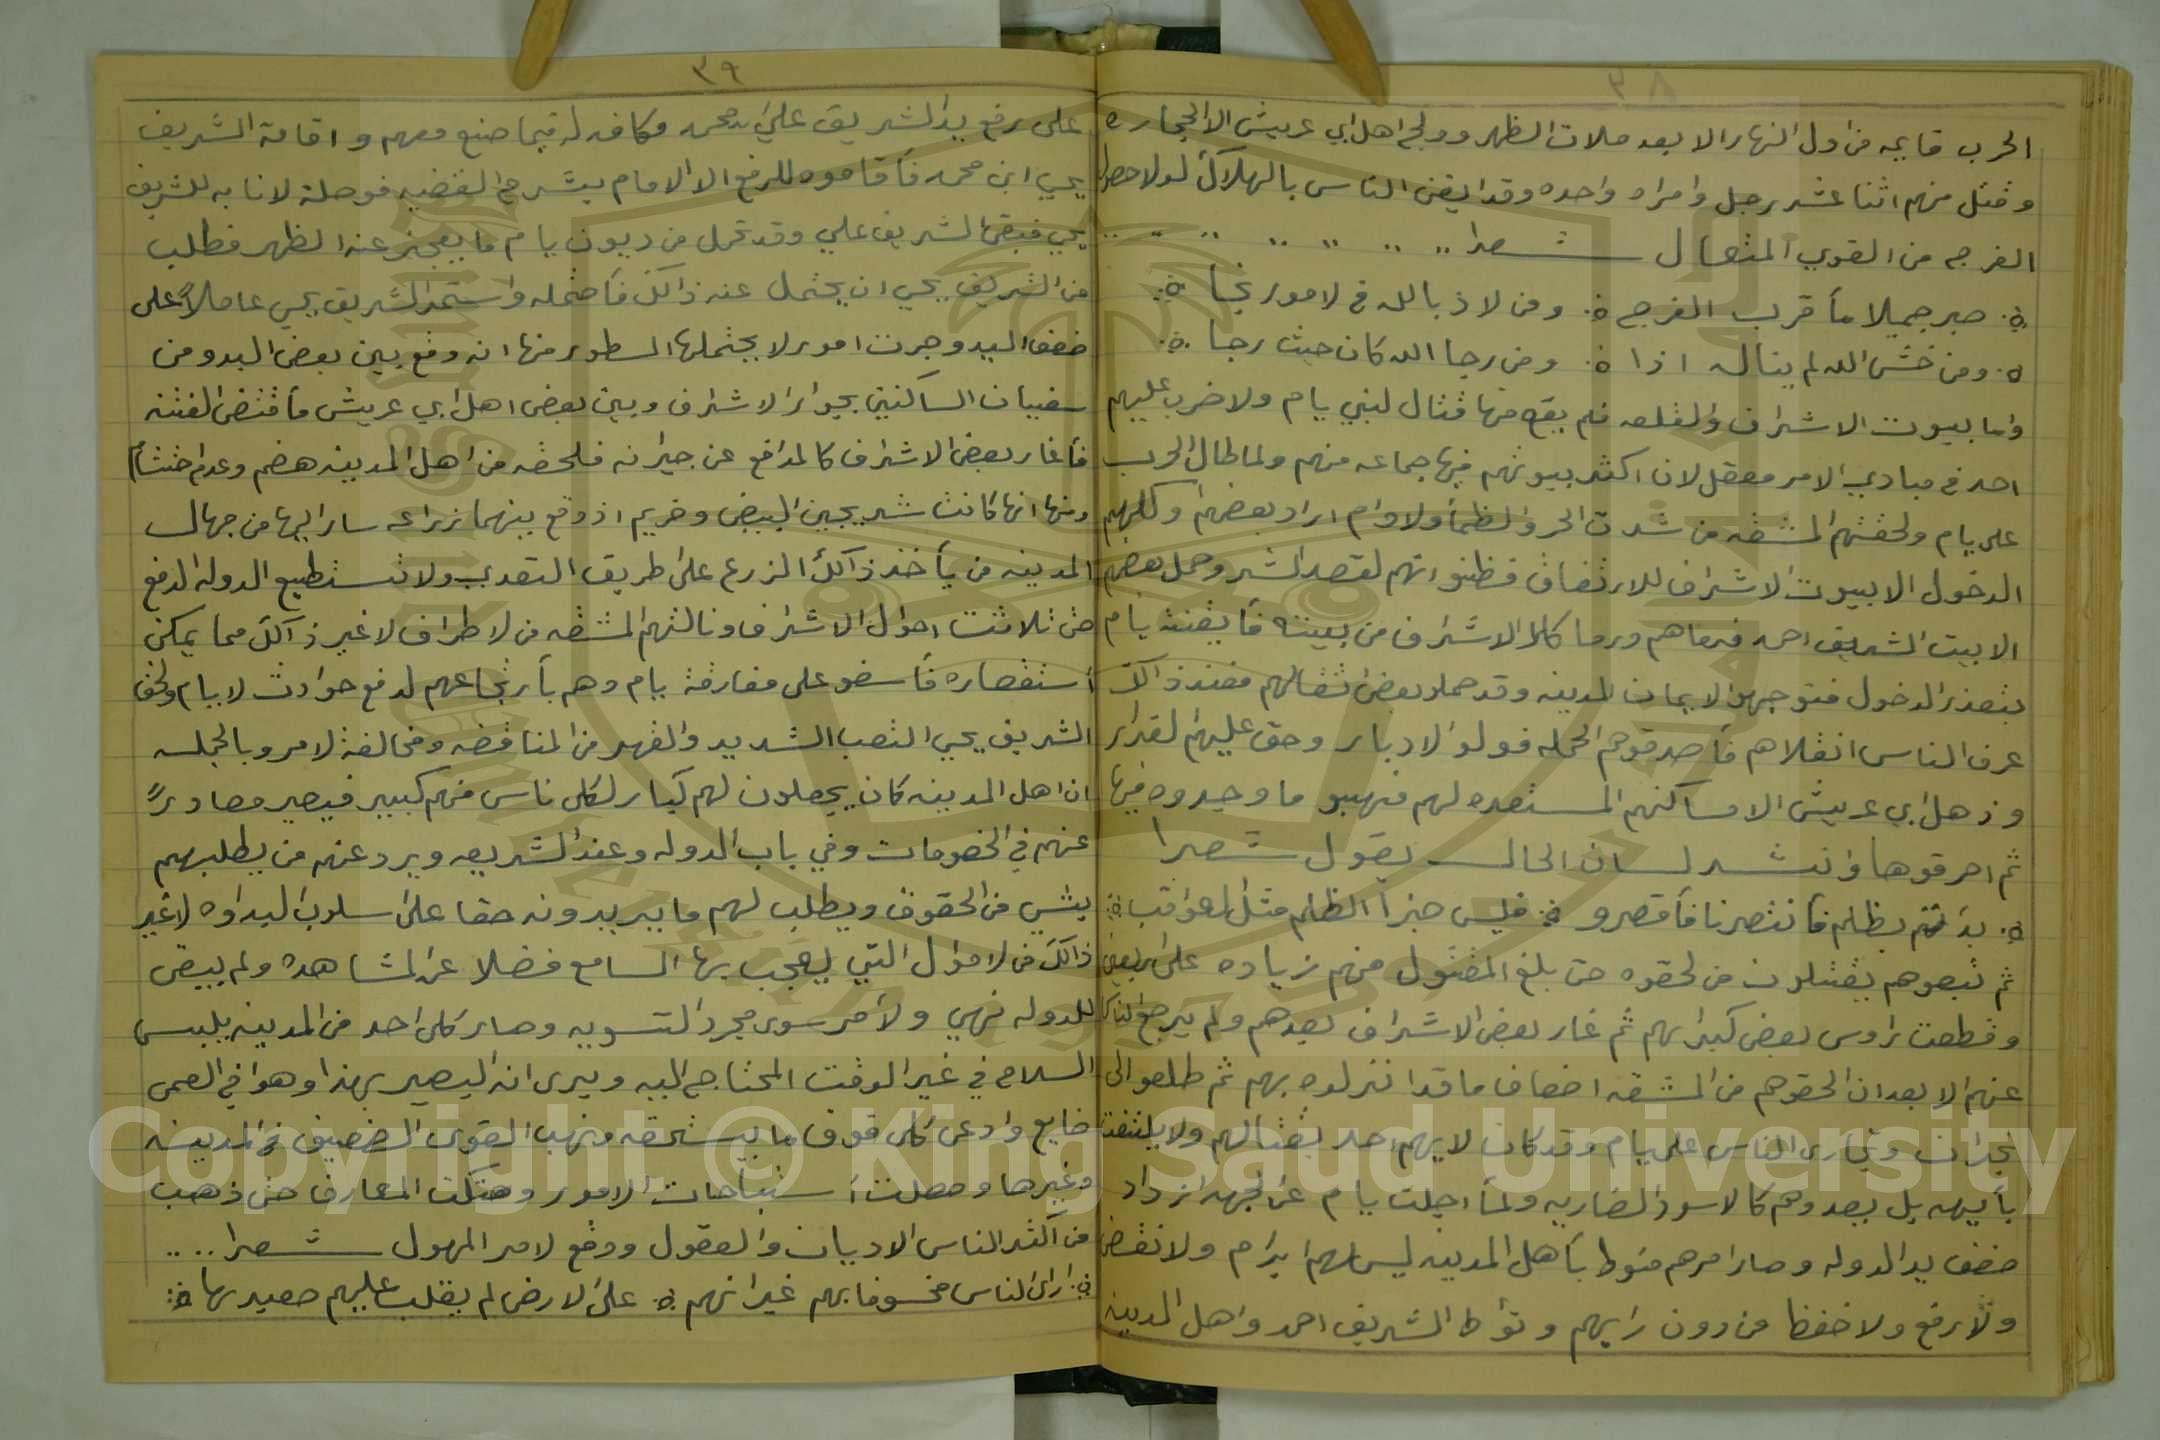 ٣٨
الحرب قايمه من اول النهار الا بعد صلات الظهر وولج اهل ابي عريش الا الحجاره
وقتل منهم اثنا عشر رجل وامراه واحده وقد ايقن الناس بالهلاك لولا حصول
الفرجه من القوي المتعال شعرا
صبر جميلا ما قرب الفرج ومن لاذ بالله في لامور نجا
ومن خشى الله لم يناله اذا ومن رجا الله كان حيث رجا
واما بيوت الاشراف والقلعه فلم يقع منها قتال لبني يام ولا ضرب عليهم
احد في مبادي الامر معقل لان اكثر بيوتهم فيها جماعه منهم ولما طال الحرب
على يام ولحقتهم المشقه من شدت الحر والظمأ ولاوام اراد بعضهم وكلهم
الدخول الا بيوت الاشراف للارتفاق فظنو انهم لقصد الشر وحمل بعضهم
الا بيت الشريف احمد فرماهم ورما كلا الاشراف من بيته فأيقنت يام
بتعذر الدخول فتوجهوا لا يمان المدينه وقد حملو بعض اثقالهم فعند ذالك
عرف الناس انقلاهم فأصدقوهم الحمله فولو الادبار وحق عليهم لقدار
وذهل ابي عريش الا مساكنهم المستعده لهم فنهبو ما وجدوه فيها
ثم احرقوها وانشد لسان الحال يقول شعرا
بدأتم بظلم فأنتصرنا فأقصرو فليس جزا الظلم مثل العواقب
ثم تبعوهم يقتلون من لحقوه حتى بلغ المقتول منهم زياده على اربعين
وقطعت روس بعض كبرائهم ثم غار بعض الاشراف بعدهم ولم يرجع لنكا
عنهم الا بعد ان الحقوهم من المشقه اضعاف ما قد انزلوه بهم ثم طلعو الى
نجران وتجارى الناس على يام وقد كان لايهم احد بقتالهم ولا يلتفت
بأيهه بل يعدوهم كالاسود الضاريه ولما اجلت يام عن الجهه ازداد
ضعف يد الدوله وصار امرهم منوط بأهل المدينه ليس لهم ابرام ولا نقض
ولا رفع ولا خفظ من دون رايهم وتواطا الشريف احمد واهل المدينه
٣٩
على رفع يد الشريف علي بن محمد مكافه له فيما صنع معهم واقامة الشريف
يحيي ابن محمد فأقاموه للرفع الا الامام بشرح القضيه فوصلة لانابه للشريف
يحيي فبقى الشريف علي وقد تحمل من ديون يام ما يعجز عنه الظهر فطلب
من الشريف يحيي ان يحتمل عنه ذالك فأحتمله واستمر الشريف يحيي عاملاً على
ضعف اليد وجرت امور لا يحتملها السطور منها انه وقع بين بعض البدو من
سفيان الساكنين بجوار الاشراف وبين بعض اهل ابي عريش ما قتضى الفتنه
فأغار بعض الاشراف كالمدافع عن جيرانه فلحقه من اهل المدينه هضم وعدم احتشام
ومنها انها كانت شريجين البيض وخريم اذ وقع بينهما زراعه سار اليها من جهال
المدينه من يأخذ ذالك الزرع على طريق التعدي ولا تستطيع الدوله الدفع
حتى تلاشت احوال الاشراف ونالتهم المشقه من لاطراف لا غير ذالك مما يمكن
أستقصاره فأسفو على مفارقة يام وهم بأرتجاعهم لدفع حوادث لايام ولحق
الشريف يحيي التعب الشديد والقهر من المناقضه ومخالفة لامر وبالجمله
ان اهل المدينه كان يجعلون لهم كبار لكل ناس منهم كبير فيصير مصادراً
عنهم في الخصومات وفي باب الدوله وعند الشريعه ويرد عنهم من يطلبهم
بشي من الحقوق ويطلب لهم ما يريدونه حقا على اسلوب البداوه لا غير
ذالك من لاحوال التي يعجب بها السامع فضلا عن المشاهده ولم يبقى
للدوله نهي ولا أمر سوى مجرد التسويه وصار كل احد من المدينه يلبس
السلاح في غير الوقت المحتاج اليه ويرى انه البصير بهذا وهوا في العمى
ضايع وادعى كل قوق ما يستحقه ونهب القوى الضعيف في المدينه
وغيرها وحصلت أستباحات الامور وهتكت المعارف حتى ذهب
من اكثر الناس الاديان والعقول ووقع لامر المهول شعرا
ارى الناس مخسوفا بهم غير انهم على الارض لم يقلب عليهم صعيدها
Copyright © King Saud University